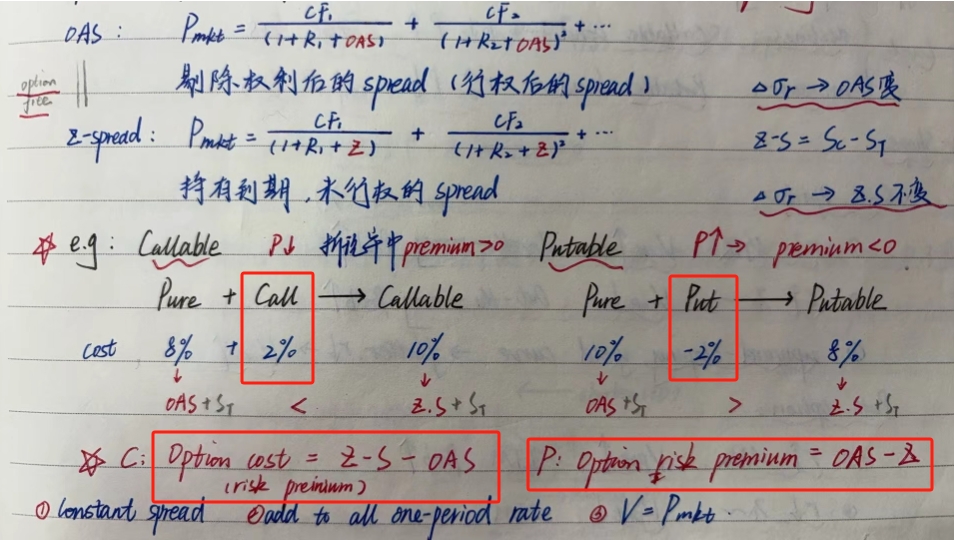 OAS : P_mkt = CF₁/(1+R₁+OAS) + CF₂/(1+R₂+OAS)² + ...
option free
剔除权利后的spread (行权后的spread) Δσr → OAS变
Z-spread : P_mkt = CF₁/(1+R₁+Z) + CF₂/(1+R₂+Z)² + ... Z-S = Sc - S_T
持有到期,未行权的spread Δσr → Z.S不变
☆ e.g : Callable P↓ 折现率中premium>0 Putable P↑ → premium<0
Pure + Call → Callable Pure + Put → Putable
cost 8% + 2% 10% 10% -2% 8%
↓ ↓ ↓ ↓
OAS+S_T < Z.S+S_T OAS+S_T > Z.S+S_T
☆ C: Option cost = Z-S - OAS P: Option risk premium = OAS - Z
(risk preinium)
① Constant spread ② add to all one-period rate ③ V = P_mkt.